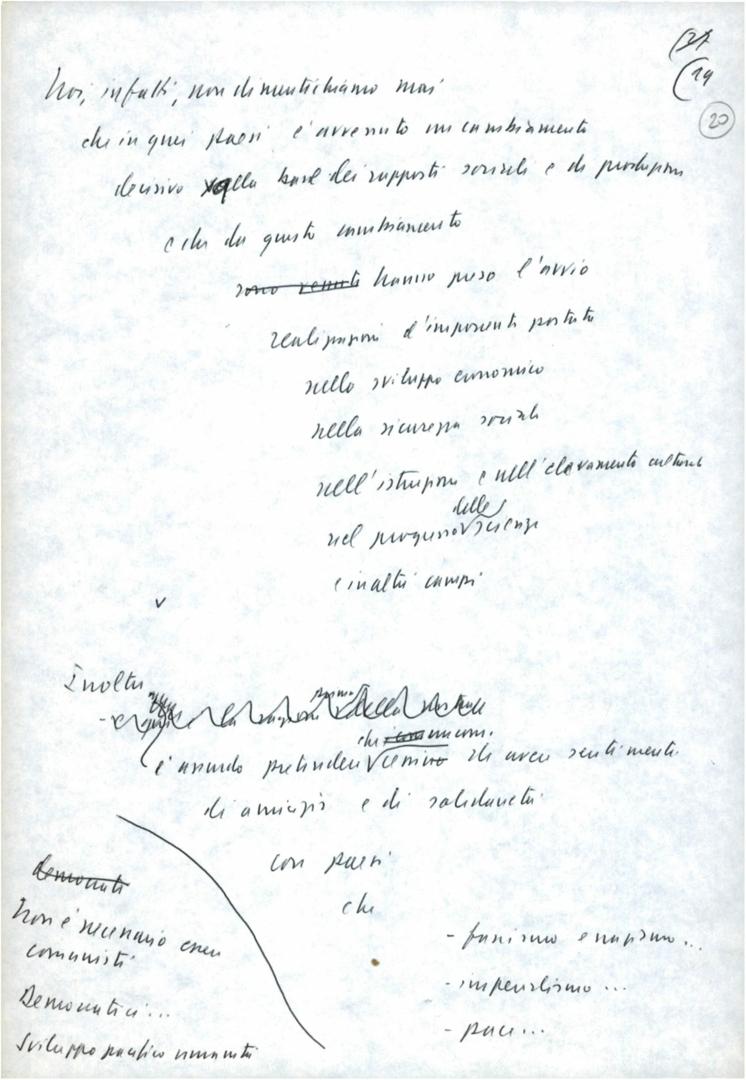 (21
(19
20
Noi, infatti, non dimentichiamo mai
che in quei paesi è avvenuto un cambiamento
decisivo nella base dei rapporti sociali e di produzione
e che da questo cambiamento
sono venuti hanno preso l'avvio
realizzazioni d'imponente portata
nello sviluppo economico
nella sicurezza sociale
nell'istruzione e nell'elevamento culturale
nel progresso delle scienze
e in altri campi
v
Inoltre
è assurdo pretendere che
di avere sentimenti
di amicizia e di solidarietà
con paesi
che
- fascismo e nazismo...
- imperialismo...
- pace...
democratici
Non è necessario essere
comunisti
Democratici...
Sviluppo pacifico umanità